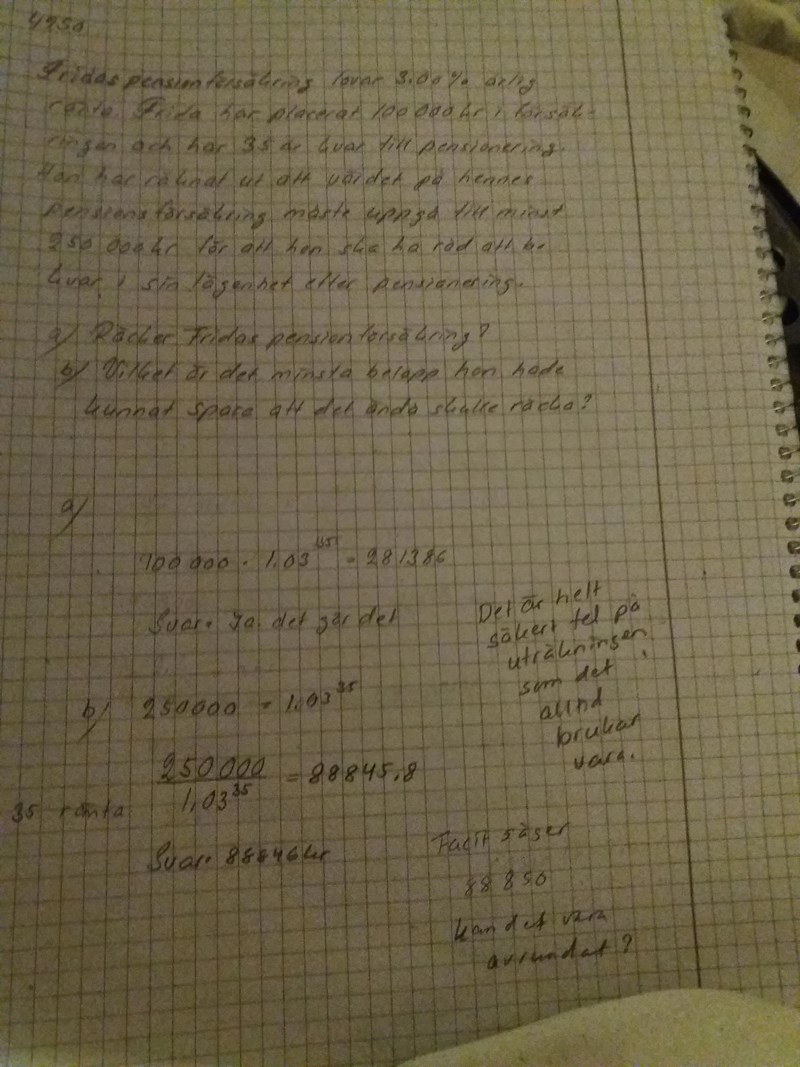 4450
Fridas pensionförsäkring lovar 3.00% årlig
ränta Frida har placerat 100 000 kr i försäk-
ringen och har 35 år kvar till pensionering.
Hon har räknat ut att värdet på hennes
pensionsförsäkring måste uppgå till minst
250 000 kr för att hon ska ha råd att bo
kvar i sin lägenhet efter pensionering.
a) Räcker Fridas pensionförsäkring?
b) Vilket är det minsta belopp hon hade
kunnat spara att det ändå skulle räcka?
a)
100 000 · 1,03^35 = 281386
Svar: Ja det gör det
Det är helt
säkert fel på
uträkningen
som det
alltid
brukar
vara.
b) 250000 = 1,03^35
250 000
/ 1,03^35 = 88845,8
35 ränta
Svar: 88846 kr
Facit säger
88 850
kan det vara
avrundat?